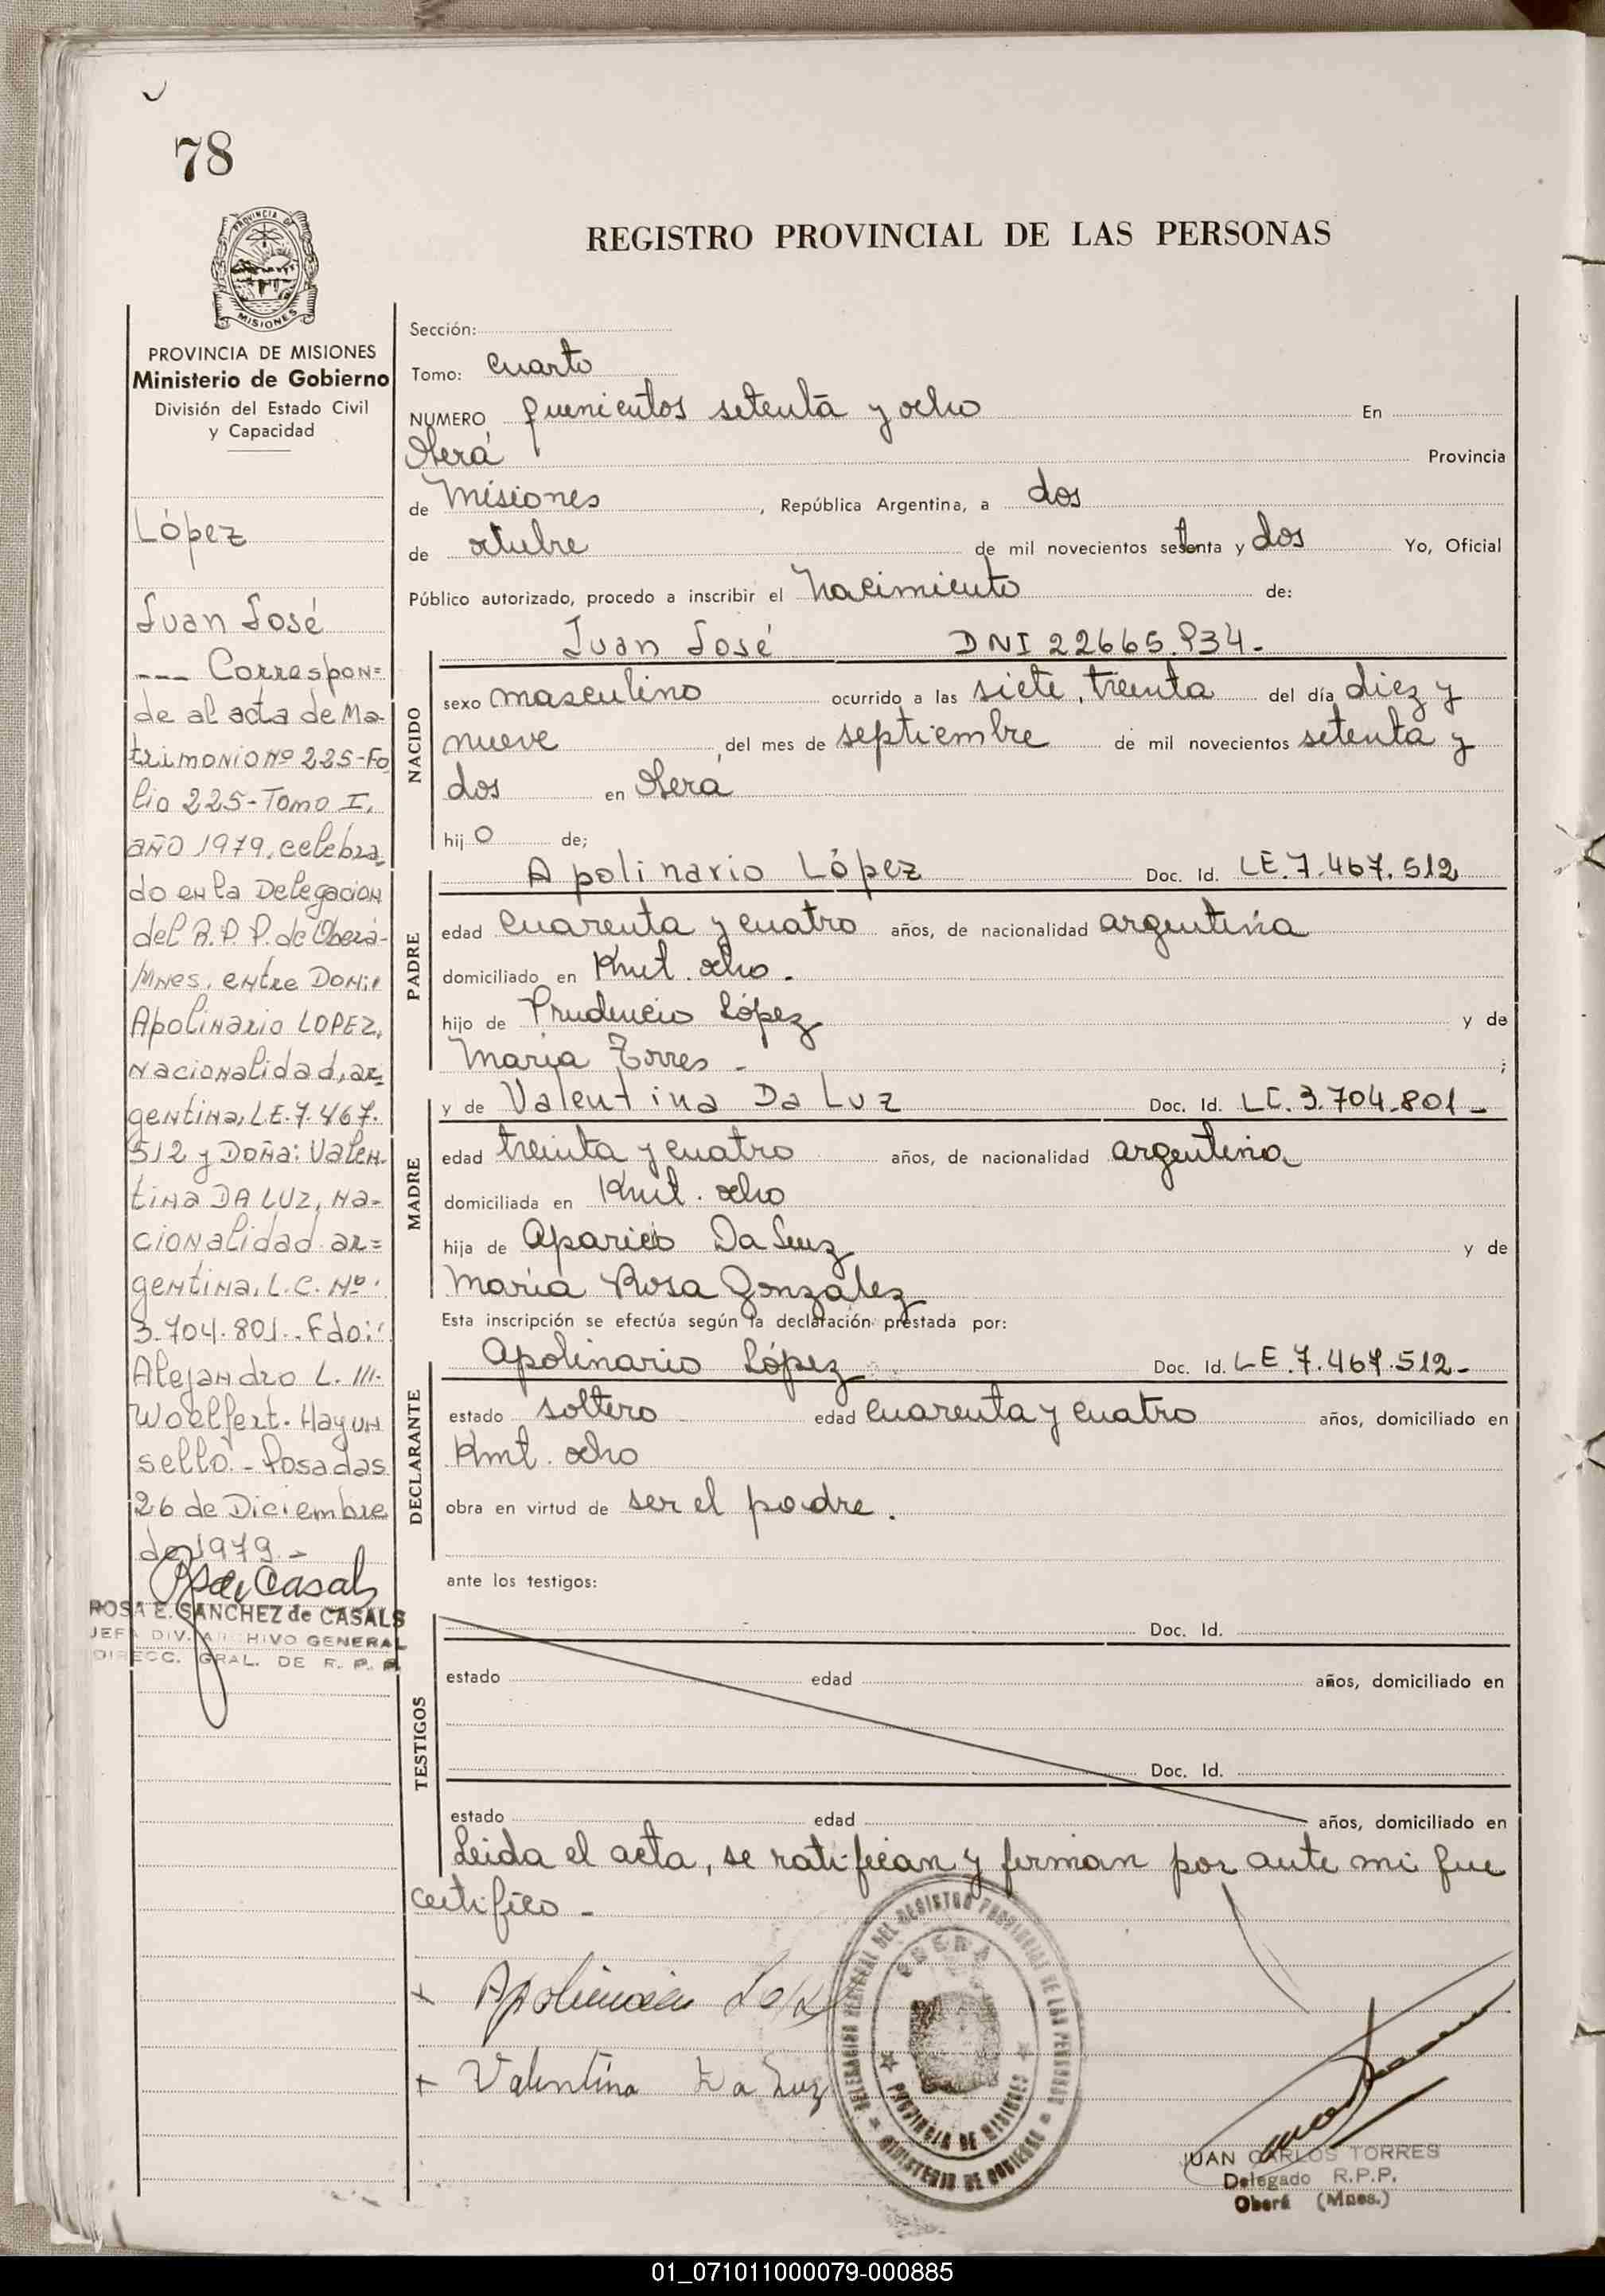 78
PROVINCIA DE
MISIONES
PROVINCIA DE MISIONES
Ministerio de Gobierno
División del Estado Civil
y Capacidad
López
Juan José
--- Correspon=
de al acta de Ma-
trimonio Nº 225-Fo
lio 225-Tomo I,
año 1979, celebra=
do en la Delegacion
del R.P.P. de Oberá-
Mnes, entre Don:
Apolinario LOPEZ,
nacionalidad, ar=
gentina, L.E. 7.467.
512 y Doña: Valen-
tina DA LUZ, na-
cionalidad ar=
gentina, L.C. Nº
3.704.801.. Fdo:
Alejandro L. M.
Woelfert. Hay un
sello.- Posadas
26 de Diciembre
de 1979.-
ROSA E. SANCHEZ de CASALS
JEFA DIV. ARCHIVO GENERAL
DIRECC. GRAL. DE R. P. P.
REGISTRO PROVINCIAL DE LAS PERSONAS
Sección:
Tomo: Cuarto
NUMERO quinientos setenta y ocho En
Oberá Provincia
de Misiones, República Argentina, a dos
de octubre de mil novecientos setenta y dos Yo, Oficial
Público autorizado, procedo a inscribir el Nacimiento de:
NACIDO
Juan José DNI 22665.934-
sexo masculino ocurrido a las siete, treinta del día diez y
nueve, del mes de septiembre de mil novecientos setenta y
dos en Oberá
hijo de;
PADRE
Apolinario López Doc. Id. LE.7.467.512
edad cuarenta y cuatro años, de nacionalidad argentina
domiciliado en Kmt. ocho.
hijo de Prudencio López y de
María Torres - ;
MADRE
y de Valentina Da Luz Doc. Id. LC.3.704.801-
edad treinta y cuatro años, de nacionalidad argentina
domiciliada en Kmt. ocho
hija de Aparicio Da Luz y de
María Rosa González
Esta inscripción se efectúa según la declaración prestada por:
DECLARANTE
Apolinario López Doc. Id. LE.7.467.512-
estado soltero edad cuarenta y cuatro años, domiciliado en
Kmt. ocho
obra en virtud de ser el padre.
ante los testigos:
TESTIGOS
Doc. Id.
estado edad años, domiciliado en
Doc. Id.
estado edad años, domiciliado en
Leida el acta, se ratifican y firman por ante mi que
certifico -
+ Apolinario López
+ Valentina Da Luz
DELEGACION DEL REGISTRO PROVINCIAL DE LAS PERSONAS
OBERA
PROVINCIA DE MISIONES
MINISTERIO DE GOBIERNO
JUAN CARLOS TORRES
Delegado R.P.P.
Oberá (Mnes.)
01_071011000079-000885